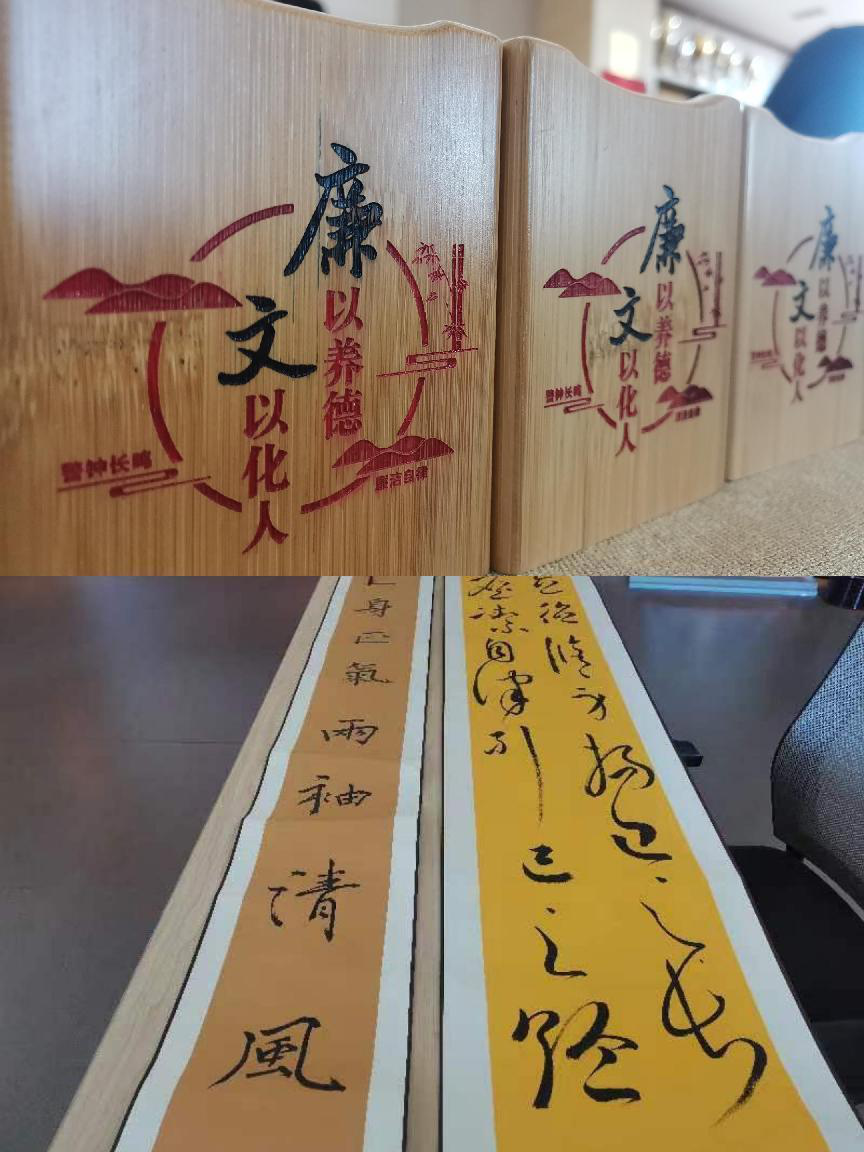 廉以养德
文以化人
警钟长鸣
廉洁自律
廉以养德
文以化人
警钟长鸣
廉以养德
文以化人
身正氣兩袖清風
揚己之长
潔自律
己之